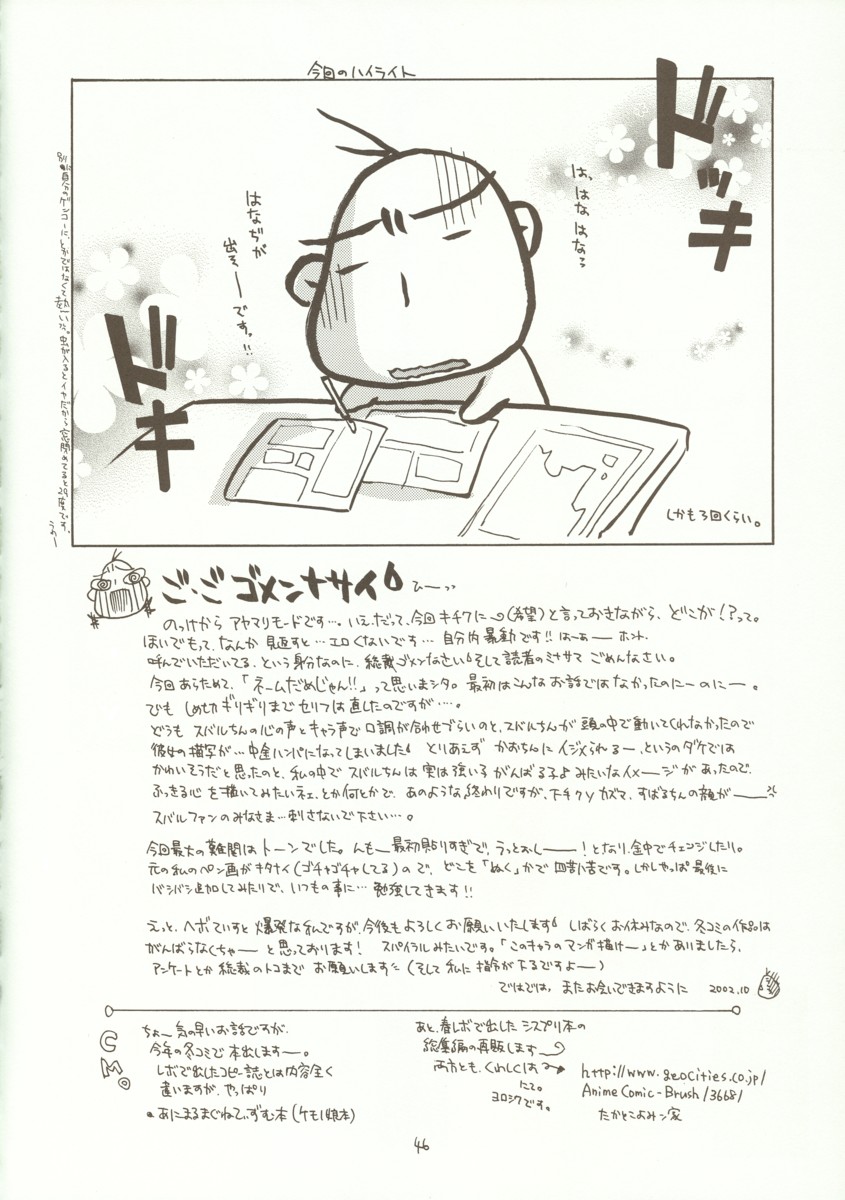 今回のハイライト
ドッキ
は、はなはなっ
はなぢが
出そーですッ!!
ドキ
別に自分のゲンコーに、とかではなくて熱いだ。虫が入るとイヤだから窓閉めてると29度です。
うへー
しかも3回くらい。
ご・ごゴメンナサイ ひーっっ
のっけから アヤマリモードです…。いえ、だって、今回キチクに (希望)と言っておきながら、どこが!?って。
ほいでもって、なんか見返すと…エロくないです… 自分内暴動です!! はーあー ホント、
呼んでいただいてる、という身分なのに、総裁ゴメンなさい そして読者のミナサマ ごめんなさい。
今回あらためて、「ネームだめじゃん!!」って思いまシタ。最初はこんなお話ではなかったのにーのにー。
でも しめ切ギリギリまでセリフは直したのですが…。
どうも スバルちんの心の声とキャラ声で口調が合わせづらいのと、スバルちんが頭の中で動いてくれなかったので
彼女の描写が…中途ハンパになってしまいました とりあえず かおちんに イジメられるー、というのダケでは
かわいそうだと思ったのと、私の中でスバルちんは実は強い子 がんばる子♪みたいなイメージがあったので、
ふっきる心を描いてみたいネェ、とか何とかで、あのような終わりですが、下チクy カズマ、すばるちんの顔がーー
スバルファンのみなさま…刺さないで下さい…。
今回最大の難関はトーンでした。んもー最初貼りすぎで、うっとおしーー!となり、途中でチェンジしたり。
元の私のペン画がキタナイ(ゴチャゴチャしてる)ので、どこを「ぬく」かで四苦八苦です。しかしやっぱ最後に
バシバシ追加してみたりで、いつもの事に… 勉強してきます!!
えっと、ヘボていすと爆発な私ですが、今後もよろしくお願いいたします しばらくお休みなので、冬コミの作品は
がんばらなくちゃーと思っております! スパイラルみたいです。「このキャラのマンガ描けー」とかありましたら、
アンケートとか総裁のトコまで お願いします (そして私に指令が下るですよー)
ではでは、またお会いできますように 2002.10
CM。
ちょー気の早いお話ですが、
今年の冬コミで本出しますー。
レボで出したコピー誌とは内容全く
違いますが、やっぱり
●あにまるまぐねてぃずむ本(ケモノ娘本)
あと、春レボで出した シスプリ本の
総集編の再販します
両方とも、くわしくは→
http://www.geocities.co.jp/
AnimeComic-Brush/3668/
たかとこよみン家
にて。
ヨロシクです。
46